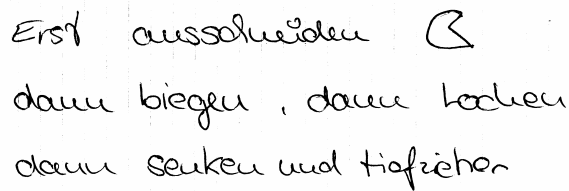 Erst ausschneiden
dann biegen, dann Lochen
dann senken und tiefziehen